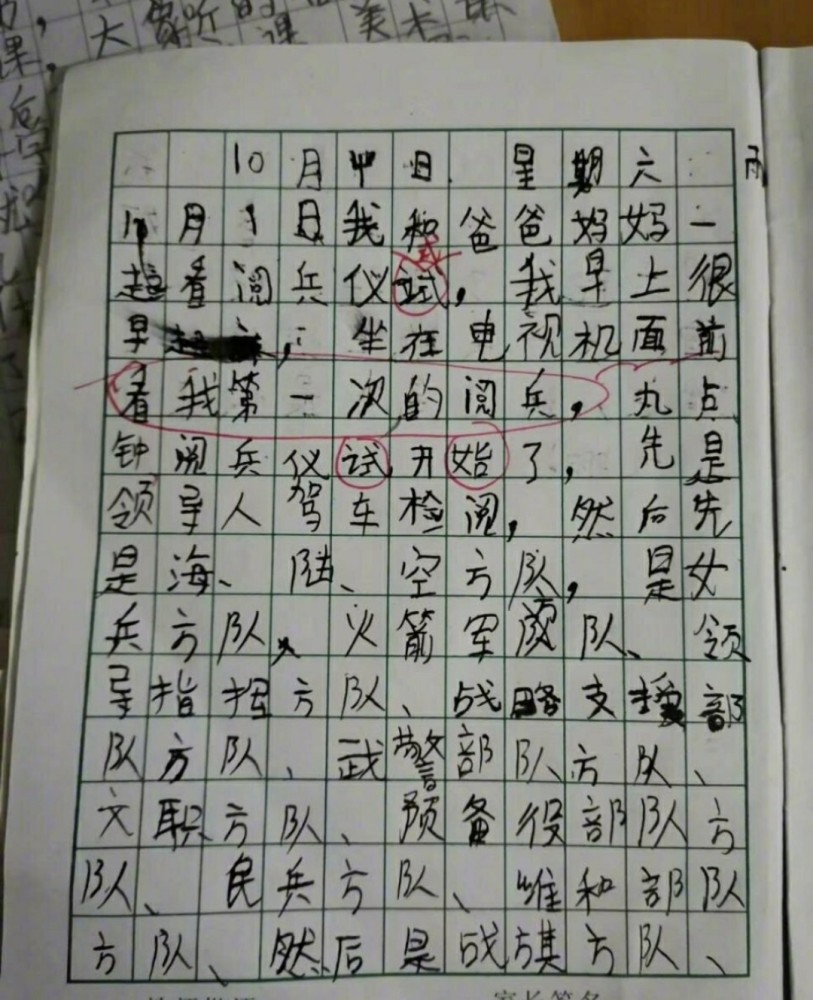 大象 听的 课 美术
课,
10月 日 星期六 雨
10月1日我和爸爸妈妈一
起看阅兵仪试,我早上很
式
早起 ,坐在电视机面前
看我第一次的阅兵,九点
钟阅兵仪试开始了,先是
领导人驾车检阅,然后先
是海、陆、空方队,是女
兵方队、火箭军 队、领
导指挥方队、战略支援部
队方队、武警部队方队、
文职方队、预备役部队方
队、民兵方队、维和部队
方队、然后是战旗方队、
家长签名